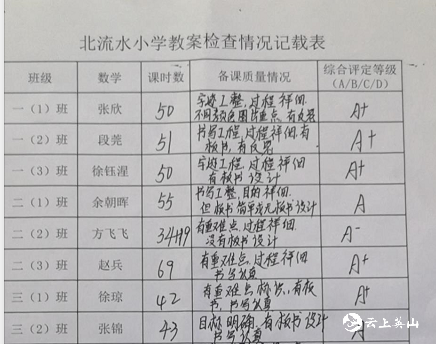 北流水小学教案检查情况记载表
班级 数学 课时数 备课质量情况 综合评定等级
(A/B/C/D)
一（1）班 张欣 50 字迹工整,过程详细, A+
重点,有反思
一（2）班 段莞 51 书写工整,过程详细,有 A+
板书,有反思
一（3）班 徐钰涅 50 字迹工整,过程详细 A+
有板书设计
二（1）班 余朝晖 55 书写工整,目的详细. A
但板书简单或无板书设计
二（2）班 方飞飞 34+19 有重难点,过程详细 A-
没有板书设计
二（3）班 赵兵 69 有重难点,过程详细 A+
书写认真
三（1）班 徐琼 42 有重难点标示,有板 A+
书,书写认真
三（2）班 张锦 43 目标明确,有板书设计
书写认真
云上英山